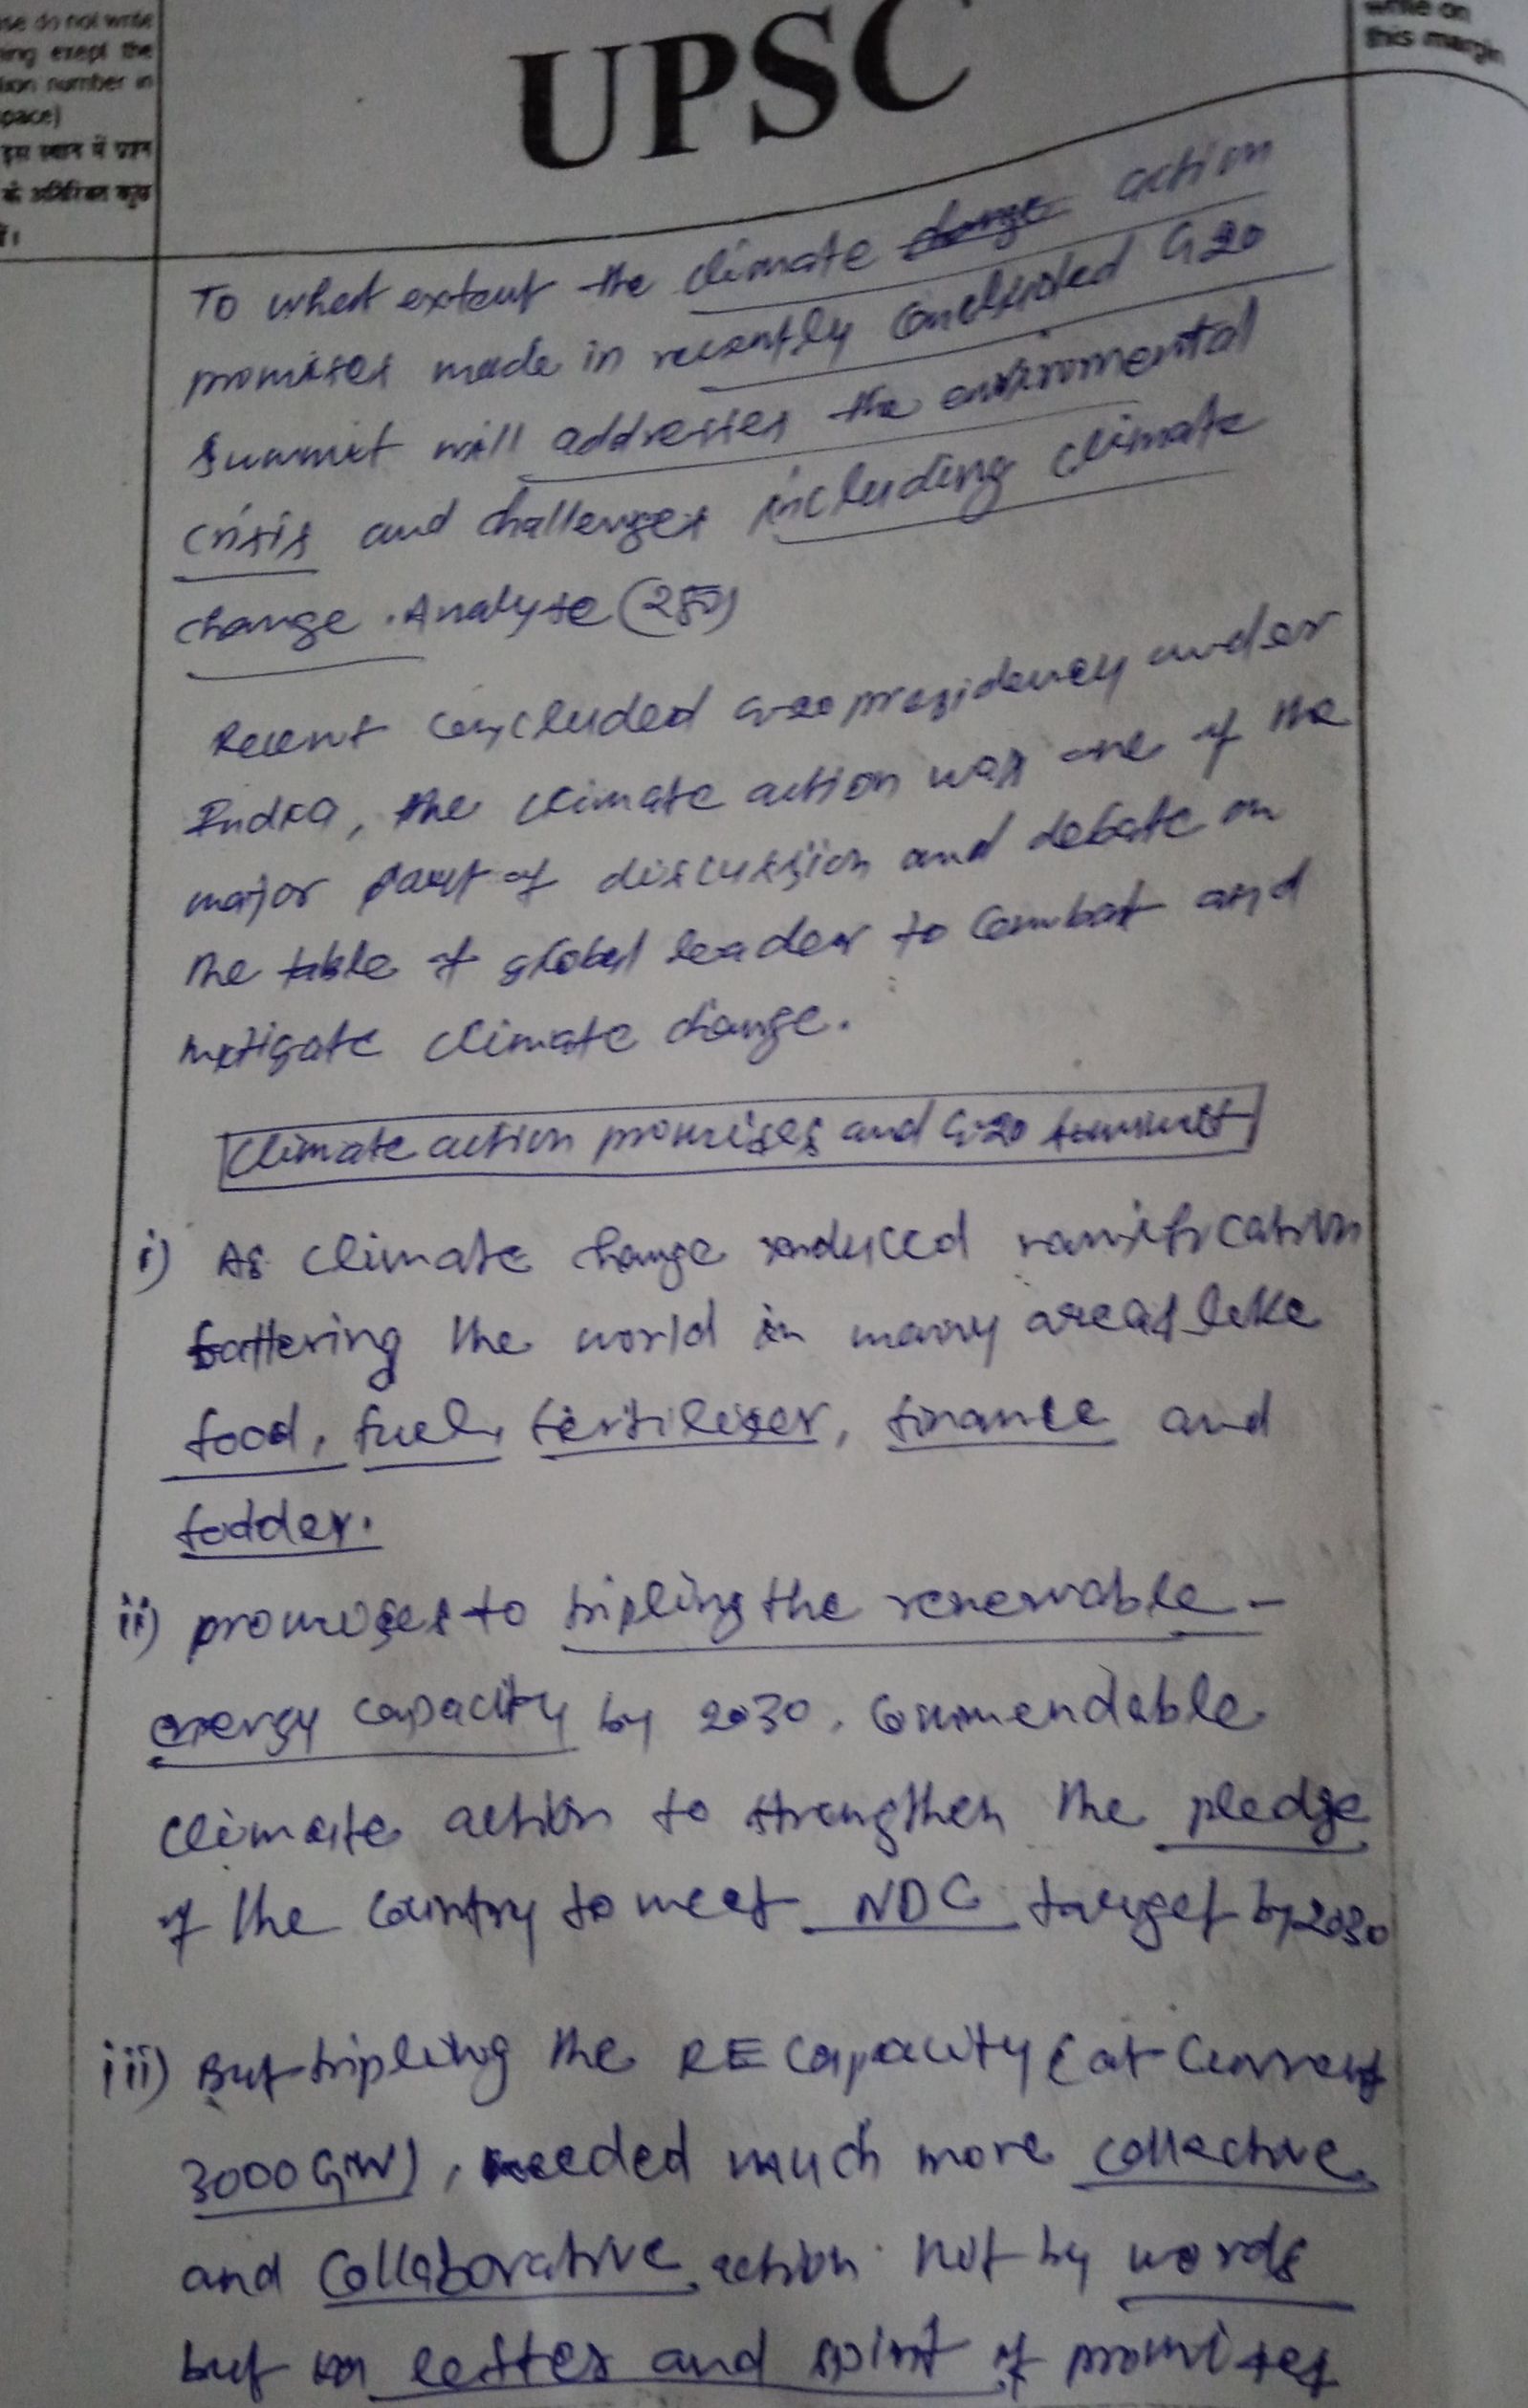 se do not write
ing exept the
tion number in
pace)
इस स्थान में प्रश्न
के अतिरिक्त कुछ
UPSC
write on
this margin
To what extent the climate action
promises made in recently concluded G20
summit will addresses the envirnomental
crisis and challenges including climate
change . Analyse (250)
Recent concluded G-20 presidency under
India, the climate action was one of the
major part of discussion and debate on
the table of global leader to combat and
mitigate climate change.
Climate action promises and G-20 summit
i) As climate change induced ramification
battering the world in many areas like
food, fuel, fertiliser, finance and
fodder.
ii) promises to tripling the renewable -
energy capacity by 2030. Commendable
climate action to strengthen the pledge
of the country to meet NDC target by 2030
iii) But tripling the RE capacity (at current
3000 GW), needed much more collective
and collaborative action not by words
but in letter and spirit of promises